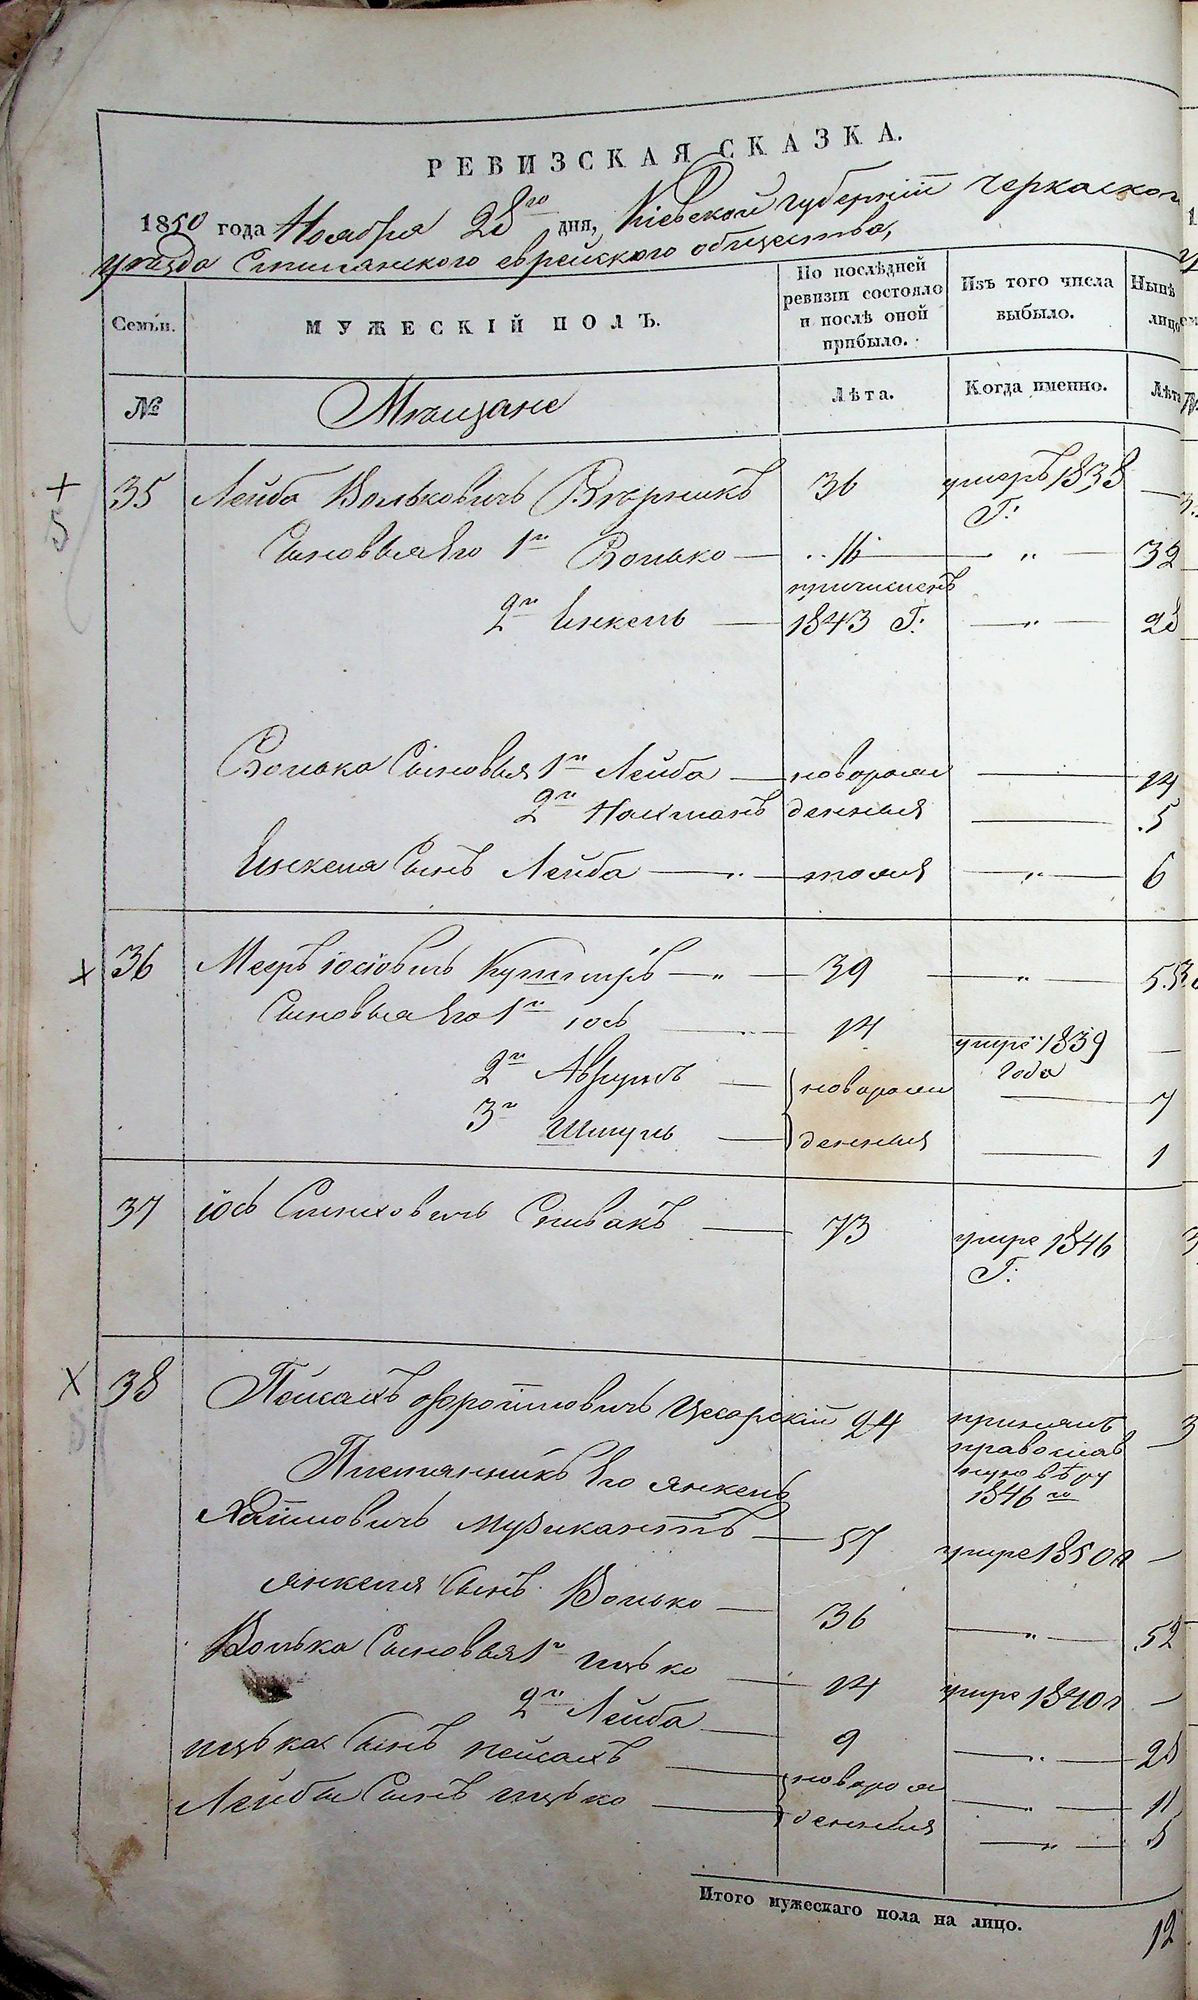 РЕВИЗСКАЯ СКАЗКА.
1850 года Ноября 28го дня, Кіевской губерніи черкаского
уезда Смилянского еврейского общества,
Семьи. МУЖЕСКІЙ ПОЛЪ. По послѣдней ревизіи состояло и послѣ оной прибыло. Изъ того числа выбыло. Нынѣ лицо
№ Мѣщане Лѣта. Когда именно. Лѣта
35 Лейба Вольковичъ 36 умеръ 1838 —
Г:
Сыновья Его 1й Волько — 16 — „ — 32
причисленъ
2й Инкель — 1843 Г: — „ — 28
Волька Сыновья 1й Лейба — новорож — 14
2й Нахманъ денныя — 5
Инкеля Сынъ Лейба — „ — тожъ — „ — 6
36 Мееръ іосіовичъ — „ — 39 — „ — 55
Сыновья Его 1й іось — 14 умре 1839 —
года
2й — новорож — 7
3й Шмуль — денныя — 1
37 іось Спивакъ — 73 умре 1846
Г:
38 Пейсахъ Фроимовичъ Цесарскій 24 принялъ —
православ
ную вѣру
1846го
Племянникъ Его янкель
Хаимовичъ музикантъ — 57 умре 1850г —
янкеля Сынъ Волько — 36 — „ — 52
Волька Сыновья 1й ицько — 14 умре 1840г —
2й Лейба — 9 — „ — 25
ицька Сынъ пейсахъ — новорож — „ — 11
Лейбы Сынъ ицько — денныя — „ — 5
Итого мужескаго пола на лицо. 12